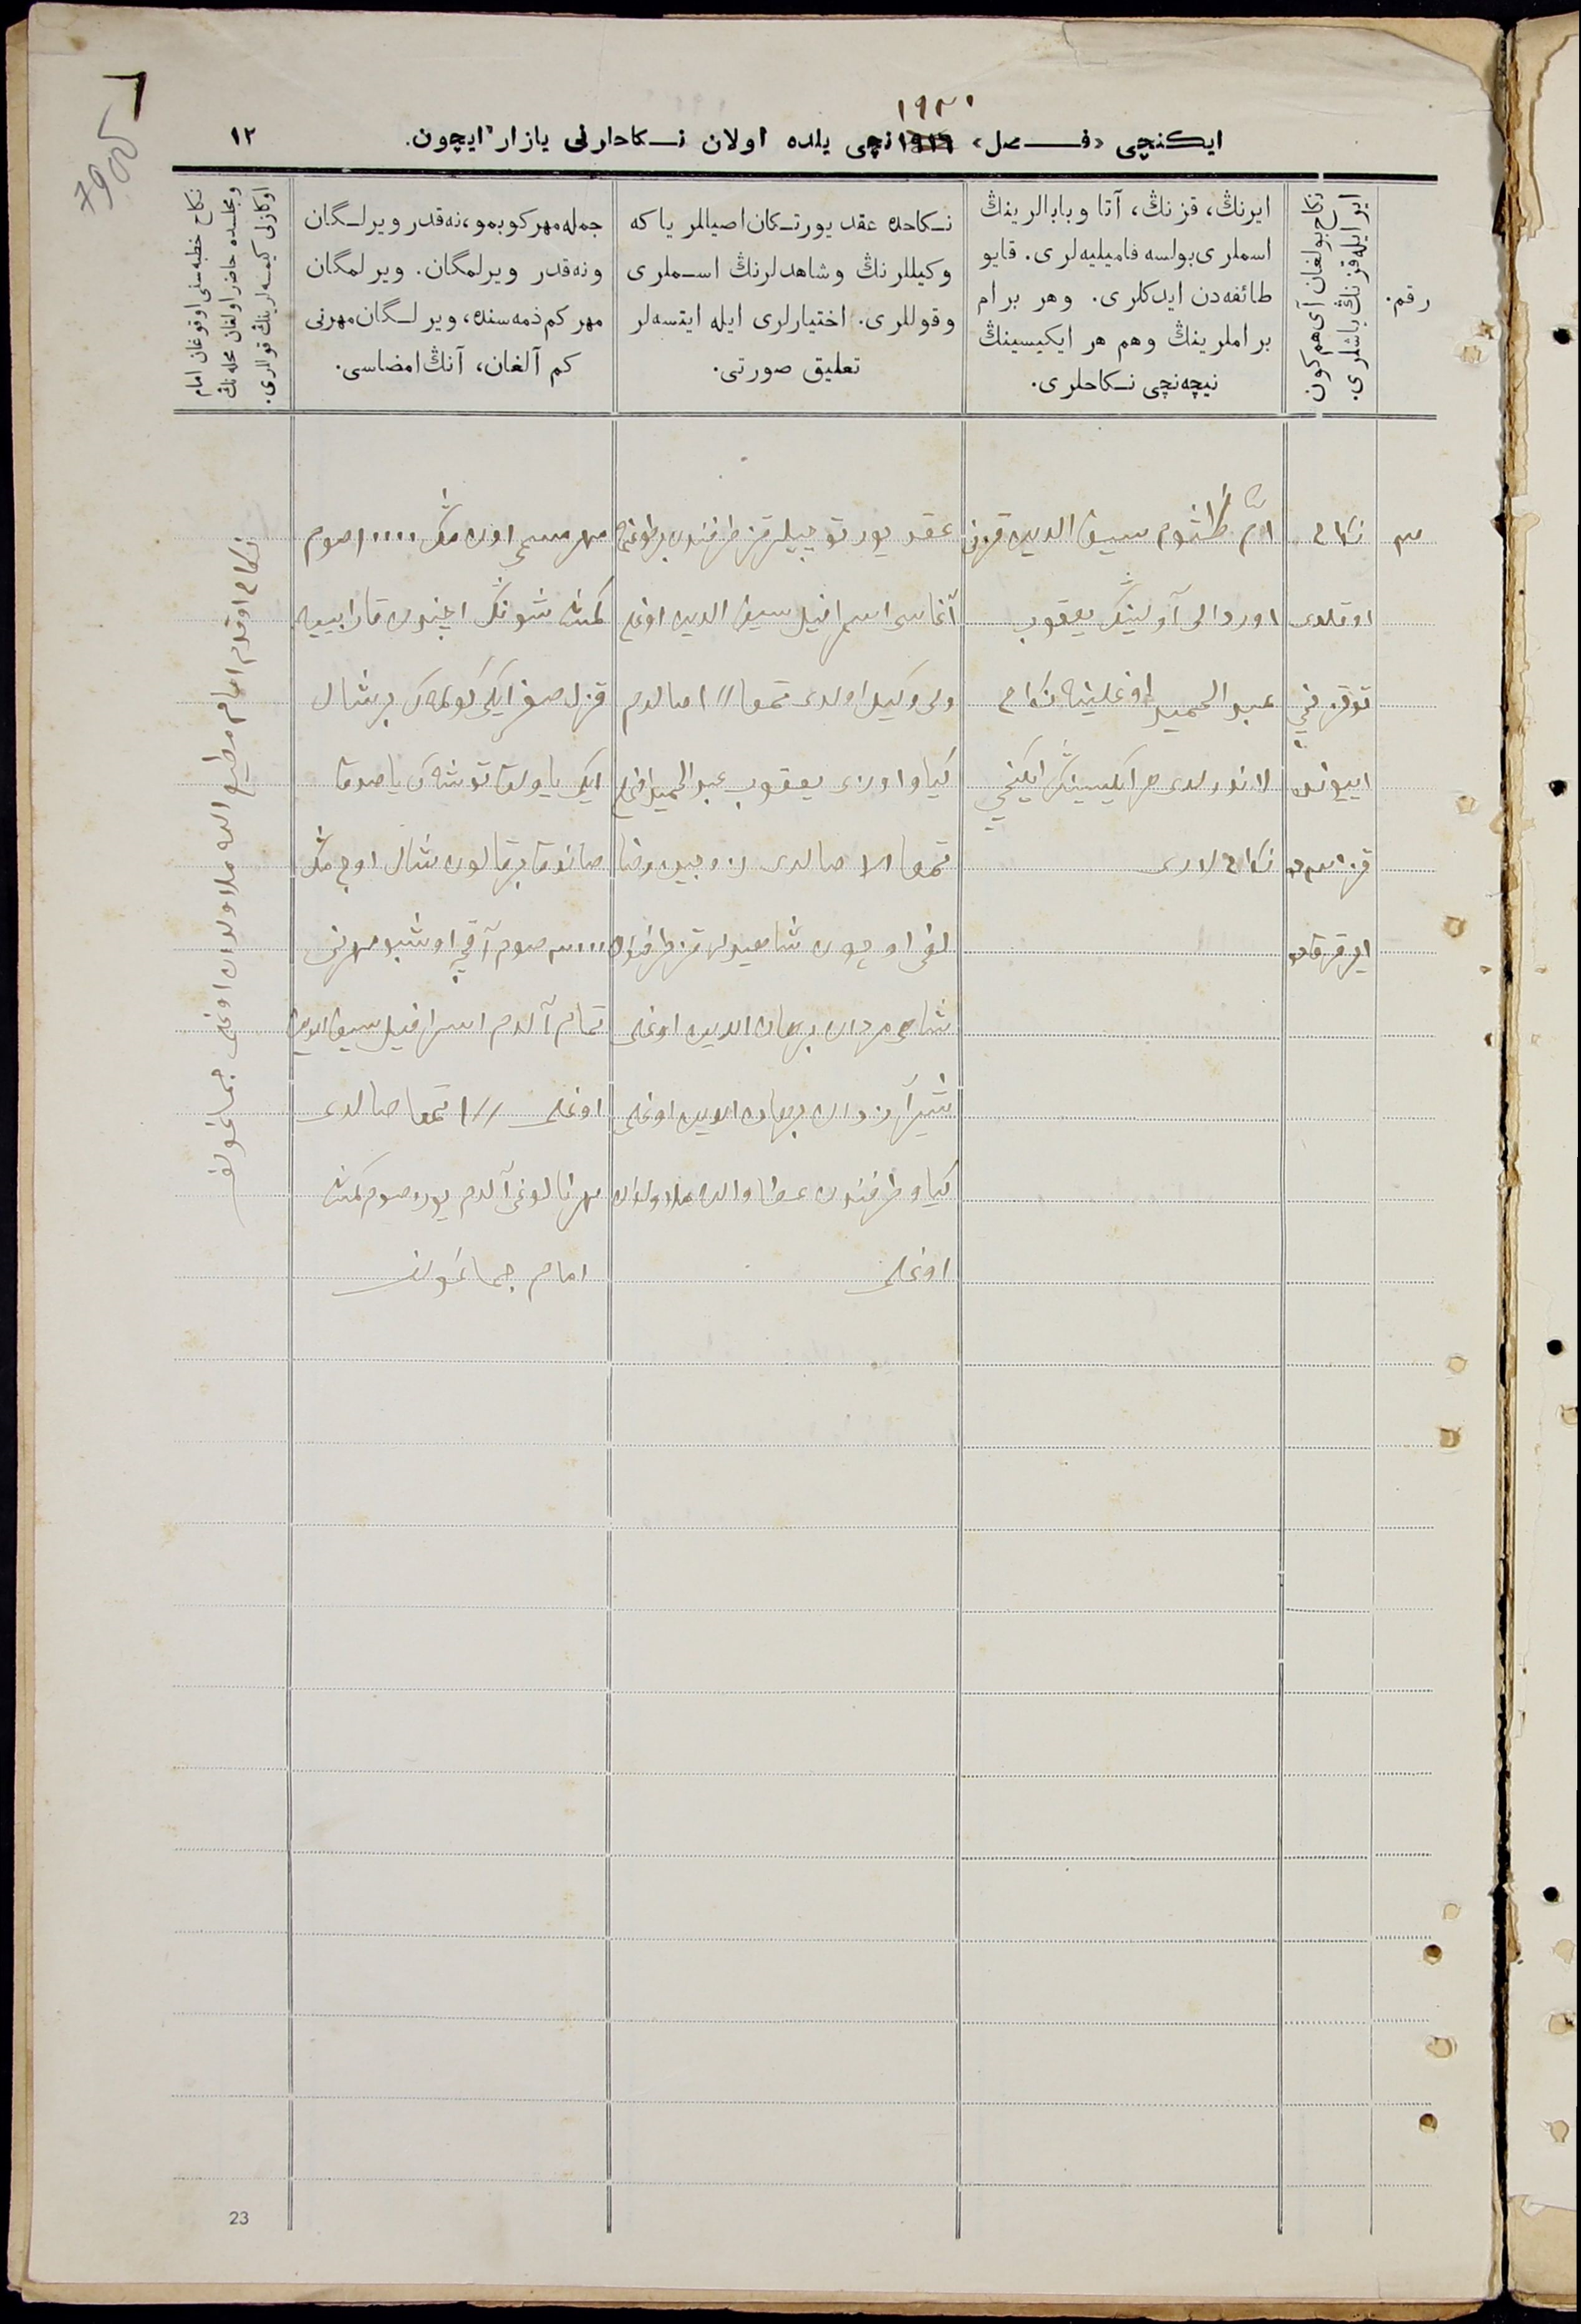 ۱۹۲۰
ایکنچی «فصل» ۱۹۱۹ نچی یلده اولان نکاحلرنی یازار ایچون.
۱۲
رقم.
نکاح بولغان آی هم کون
ایر ایله قزنڭ باشلری.
ایرنڭ، قزنڭ، آتا و بابالرینڭ
اسملری بولسه فامیلیه‌لری. قایو
طائفه‌دن ایدکلری. وهر برام
براملرینڭ وهم هر ایکیسینڭ
نیچه‌نچی نکاحلری.
نکاحده عقد یورتکان اصیاللر یا که
وکیللرنڭ وشاهدلرنڭ اسملری
وقوللری. اختیارلری ایله ایتسه‌لر
تعلیق صورتی.
جمله مهر کوبمو، نه قدر ویرلگان
ونه قدر ویرلمگان. ویرلمگان
مهر کم ذمه‌سنده، ویرلگان مهرنی
کم آلغان، آنڭ امضاسی.
نکاح خطبه‌سنی اوقوغان امام
ومجلسده حاضر اولغان محله‌نڭ
اوکازلی کیمسه‌لرینڭ قوللری.
۳
نکاح
اوقلدی
توقزنچی
اییونده
قز
ایر
ام کلثوم سیف الدین قزنی
اوردالی آولینڭ یعقوب
عبد الحمید اوغلینه نکاح
لاندرلدی هر ایکیسینڭ ایکنچی
نکاحلاری
عقد یورتوچیلر قز طرفندن برطوغان
آغاسی اسرافیل سیف الدین اوغلی
ولی وکیل اولدی تمغا // صالدم
کیاو اوزی یعقوب عبد الحمید اوغلی
تمغا صالدی زوجین رضا
لغی اوچون شاهدلر قز طرفندن
شاهی مردان برهان الدین اوغلی
شیرآزدان برهان الدین اوغلی
کیاو طرفندن عطاوالله ملاولدان
اوغلی
مهر مسمی اون مڭ ۱۰۰۰۰ صوم
کمش شونڭ اچندن قارا بییه
قزل صغر ایکی کولمک بر شال
ایکی یاولق توشاک یاصدق
صاندق بر قالون شال اوچ مڭ
۳۰۰۰ صوم آقچه اوشبو مهرنی
تمام آلدم اسرافیل سیف الدین
اوغلی //۱ تمغا صالدی
مهر نالوغی آلدم یوز صوم کمش
امام جماغولف
نکاح اوقدم امام مطیع الله ملاولدان اوغلی جماغولف
23